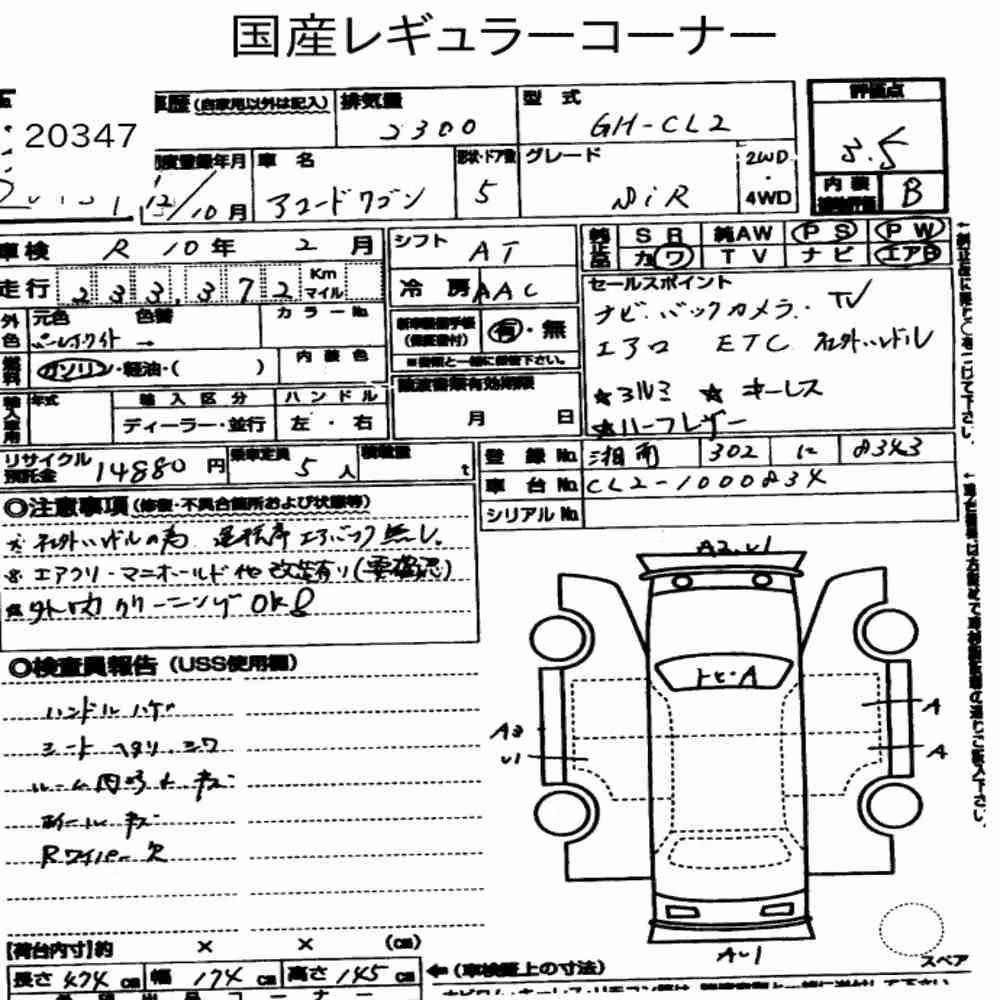 国産レギュラーコーナー
20347
車歴(自家用以外は記入)
排気量
2300
型式
GH-CL2
評価点
3.5
内装
補助評価
B
初度登録年月
12/10月
車名
アコードワゴン
形状・ドア数
5
グレード
SiR
2WD
・
4WD
車検 R 10年 2月
シフト AT
純正品
SR 純AW PS PW
カワ TV ナビ エアB
走行 233,372 Km マイル
冷房 AAC
セールスポイント
ナビ.バックカメラ.TV
エアロ ETC 社外ハンドル
★アルミ ★キーレス
★ハーフレザー
外色
元色 色替
パールホワイト →
カラーNo.
新車整備手帳
(保証書付)
有・無
※書類と一緒に送付下さい。
燃料
ガソリン・軽油・( )
内装色
譲渡書類有効期限
月 日
輸入車用
年式
輸入区分
ディーラー・並行
ハンドル
左・右
リサイクル
預託金
14880円
乗車定員
5人
積載量
t
登録No. 湘南 302 に 8343
車台No. CL2-1000834
シリアルNo.
◎注意事項(修復・不具合箇所および状態等)
※社外ハンドルの為 運転席エアバック無し.
※エアクリ・マニホールド他 改造有り(要確認)
※外内クリーニングOK
◎検査員報告(USS使用欄)
ハンドルハゲ
シートヘタリ.シワ
ルーム内汚れ キズ
ホイールキズ
Rワイパー欠
A2.U1
トビ・A
A2
U1
A
A
AU1
スペア
[荷台内寸]約 × × (cm)
長さ 474cm 幅 174cm 高さ 145cm
←(車検証上の寸法)